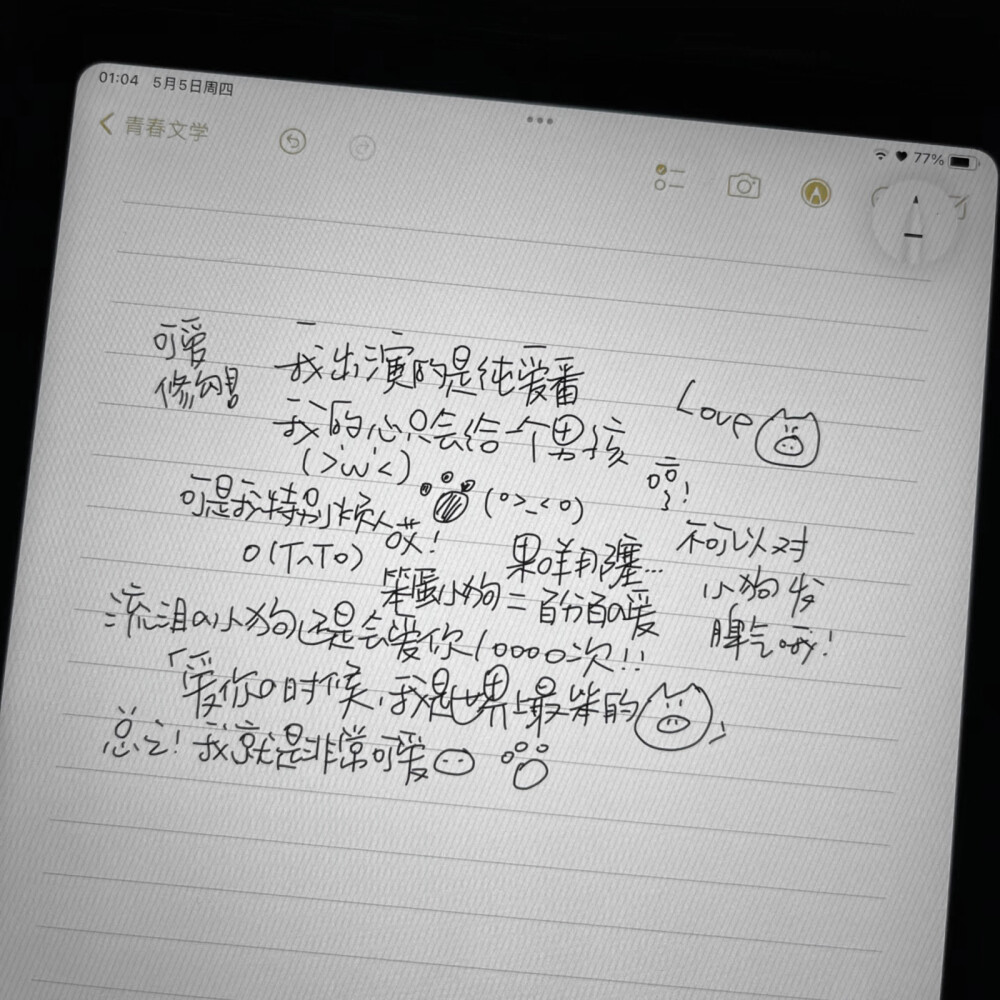 01:04 5月5日周四
77%
青春文学
可爱
修勾
我出演的是纯爱番
Love
我的心只会给一个男孩
(>'w'<)
(o>_<o)
哼!
可是我特别烦人哎!
o(T^To)
果咩那塞...
不可以对
小狗发
脾气哦!
笨蛋小狗=百分百a爱
流泪a小狗还是会爱你10000次!!
「爱你a时候,我是世界上最笨的
」
总之!我就是非常可爱